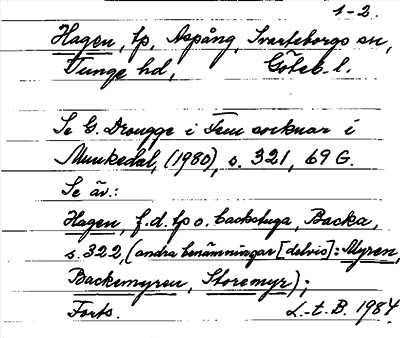 1-2.
Hagen, tp, Aspång, Svarteborgs sn,
Tunge hd, Göteb. l.
Se G. Drougge i Fem socknar i
Munkedal, (1980), s. 321, 69 G.
Se äv.:
Hagen, f.d. tp o. backstuga, Backa,
s. 322, (andra benämningar [delvis]: Myren,
Backemyren, Storemyr);
Forts. L-t. B. 1984